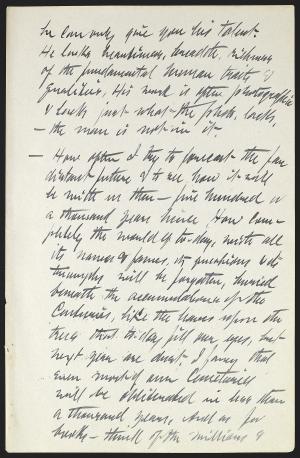 he can only give you his talent.
He lacks heartiness, breadth, richness
of the fundamental human traits &
qualities. His work is often photographic
& lacks just what the photo. lacks,
— the man is not in it.
— How often I try to forecast the far
distant future & to see how it will
be with us then — five hundred or
a thousand years hence. How com-
pletely the world of to-day, with all
its names & fames, its questions & its
triumphs will be forgotten, buried
beneath the accumulations of the
Centuries, like the leaves upon the
trees that to-day fill our eyes, and
next year are dust. I fancy that
even most of our Cemeteries
will be obliterated in less than
a thousand years. And as for
books — think of the millions &